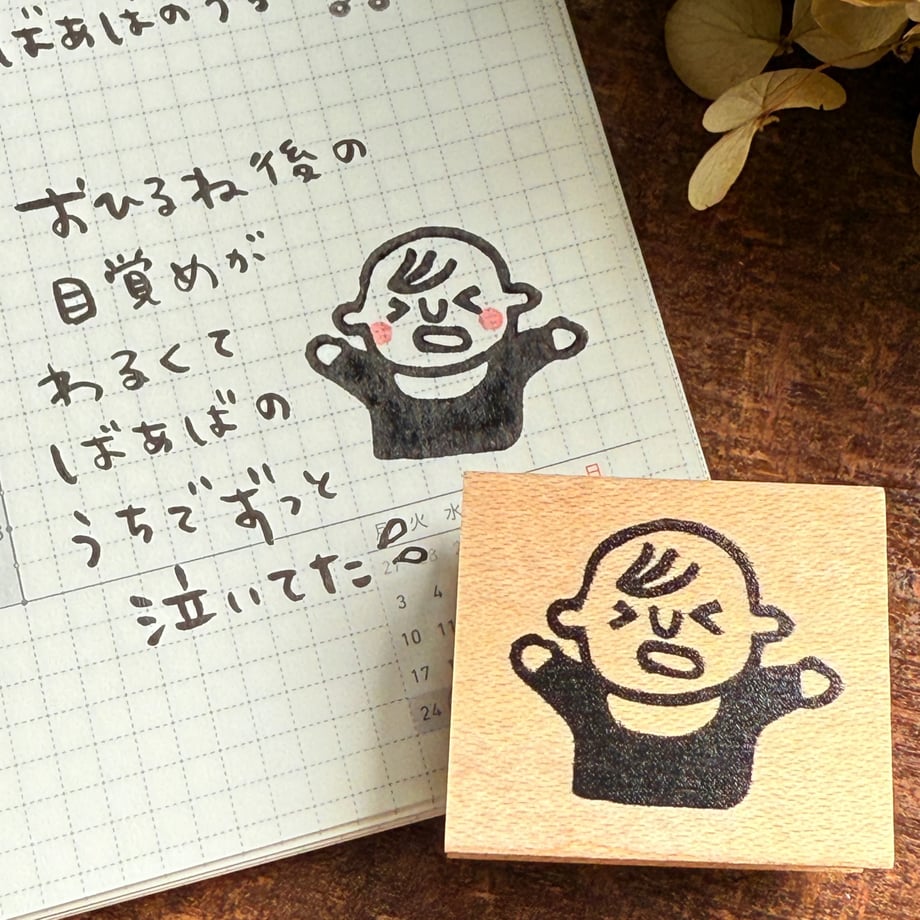 ばあばのうち
おひるね後の
目覚めが
わるくて
ばあばの
うちでずっと
泣いてた
日
月 火 水
3 4
10 11
17
24